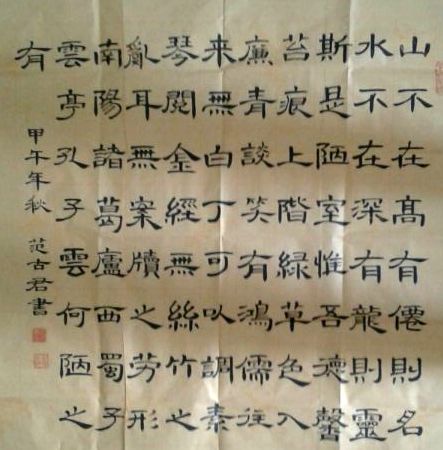 山不在髙有僊則名
水不在深有龍則靈
斯是陋室惟吾德馨
苔痕上階緑草色入
廉青談笑有鴻儒往
来無白丁可以調素
琴閱金經無絲竹之
亂耳無案牘之勞形
南陽諸葛廬西蜀子
雲亭孔子雲何陋之
有
甲午年秋 范古君書